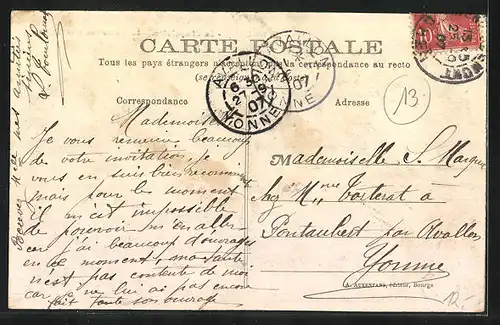 CARTE POSTALE
Tous pays étrangers Na correspondance au recto
Correspondance
Adresse
Mademoiselle
Je vous remercie beaucoup
de votre invitation, je
vous en suis bien reconnaissante
mais pour le moment
il m'est impossible
de pouvoir m'en aller
car j'ai beaucoup d'ouvrages
en ce moment, ma tante
n'est pas contente de moi
car je ne lui ai pas encore
fait toute son ouvrage
Recevez mes amitiés
Mademoiselle S.
chez Mme
Pontaubert par Avallon
Yonne
YONNE
07
13
A. AUXENFANS, éditeur, Bourge
12.-